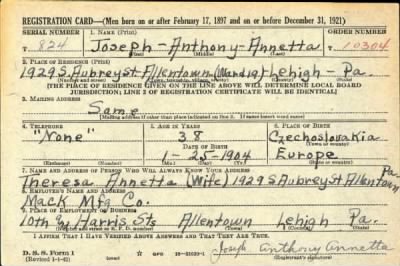 REGISTRATION CARD—(Men born on or after February 17, 1897 and on or before December 31, 1921)
SERIAL NUMBER 1. NAME (Print) ORDER NUMBER
T 824 Joseph - Anthony - Annetta 10304
2. PLACE OF RESIDENCE (Print)
1929 S. Aubrey St. Allentown (Ward 19) Lehigh - Pa.
[THE PLACE OF RESIDENCE GIVEN ON THE LINE ABOVE WILL DETERMINE LOCAL BOARD
JURISDICTION; LINE 2 OF REGISTRATION CERTIFICATE WILL BE IDENTICAL]
3. MAILING ADDRESS
Same
[Mailing address if other than place indicated on line 2. If same insert word same]
4. TELEPHONE 5. AGE IN YEARS 6. PLACE OF BIRTH
"None" 38 Czechoslovakia
DATE OF BIRTH
1-25-1904 Europe
(Exchange) (Number) (Mo.) (Day) (Yr.)
7. NAME AND ADDRESS OF PERSON WHO WILL ALWAYS KNOW YOUR ADDRESS
Theresa Annetta (Wife) 1929 S Aubrey St Allentown Pa.
8. EMPLOYER'S NAME AND ADDRESS
Mack Mfg Co.
9. PLACE OF EMPLOYMENT OR BUSINESS
10th & Harris Sts Allentown Lehigh Pa.
I AFFIRM THAT I HAVE VERIFIED ABOVE ANSWERS AND THAT THEY ARE TRUE.
D. S. S. Form 1
(Revised 1-1-42) (over) GPO 16-21630-1 Joseph Anthony Annetta
(Registrant's signature)